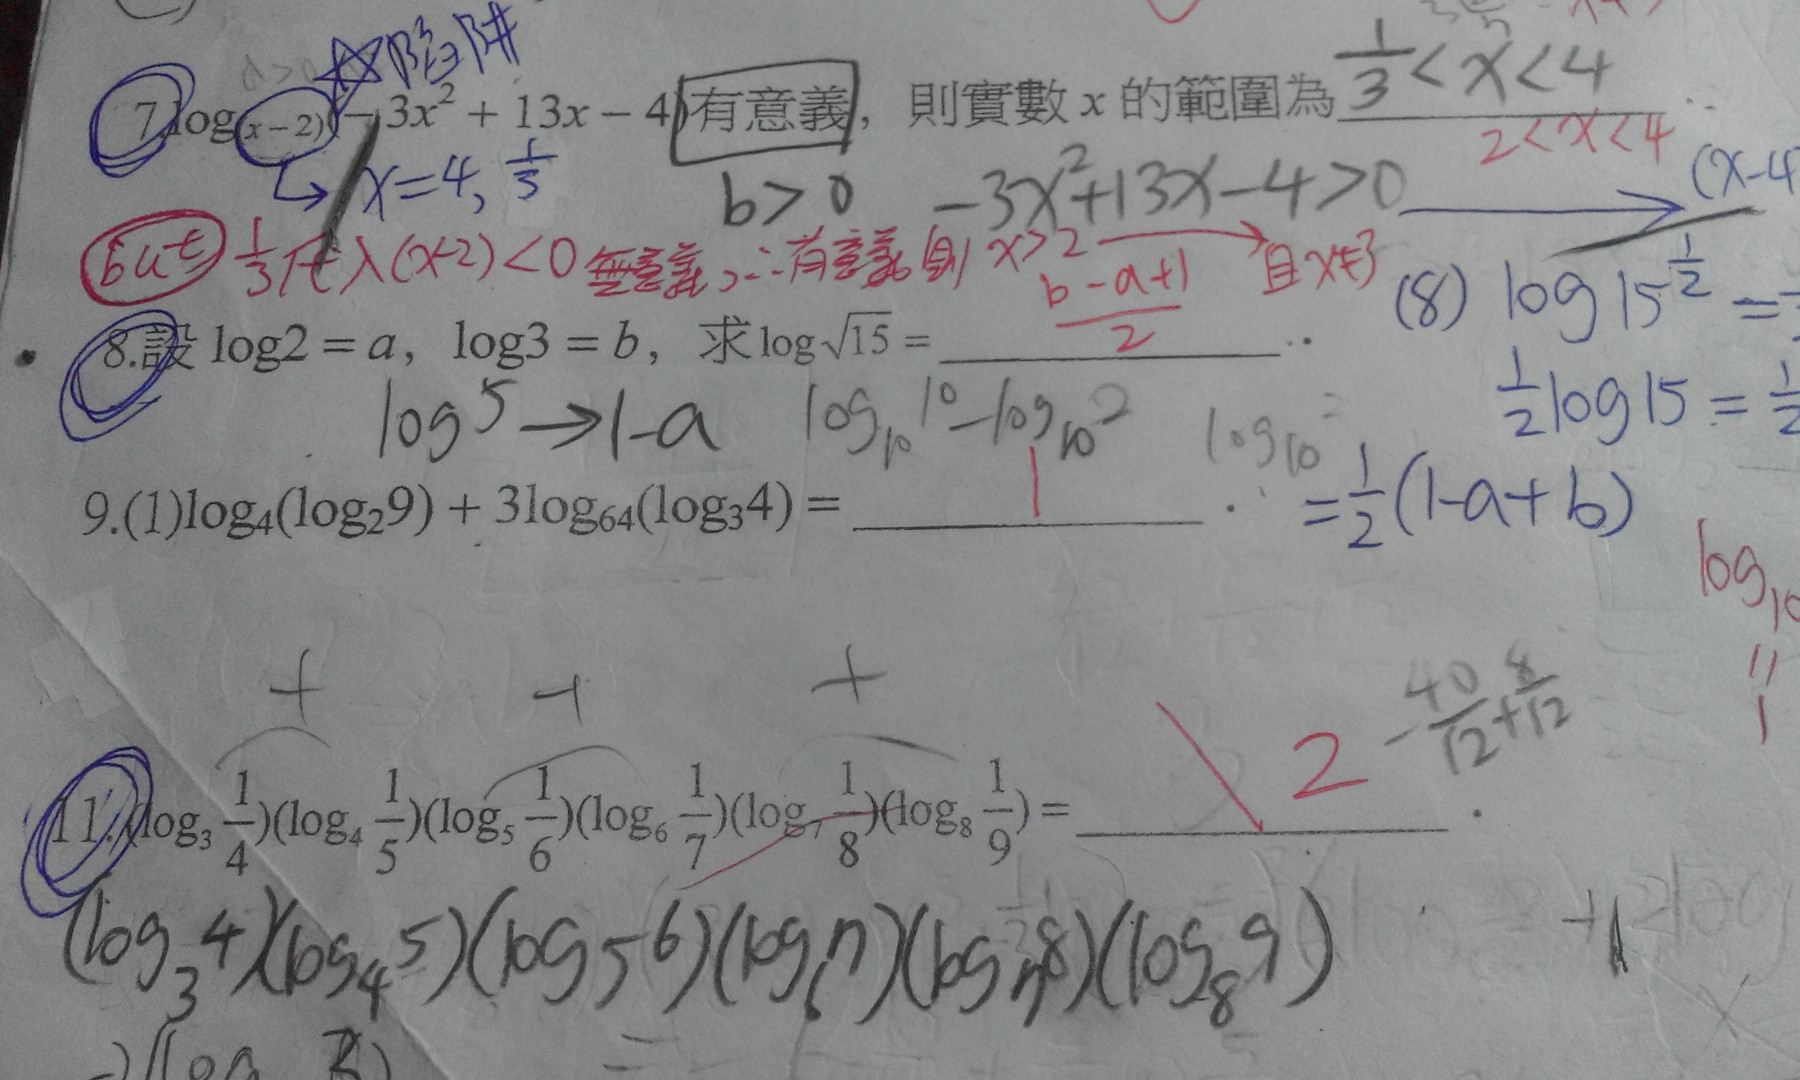 ☆陷阱
7.log(x-2)(-3x²+13x-4)有意義，則實數 x 的範圍為 1/3<x<4
2<x<4
→x=4, 1/3
b>0 -3x²+13x-4>0 → (x-4
but 1/3代入(x-2)<0 無意義, ∴有意義則 x>2 → 且x≠3
8.設 log2 = a，log3 = b，求 log√15 = (b-a+1)/2
(8) log 15^(1/2) =
log 5 → 1-a log₁₀10-log₁₀2 log₁₀
1/2 log 15 = 1/2
9.(1)log₄(log₂9) + 3log₆₄(log₃4) = 1 .
= 1/2 (1-a+b)
log₁₀
"
1
+ + +
-40/12+8/12
11.(log₃ 1/4)(log₄ 1/5)(log₅ 1/6)(log₆ 1/7)(log₇ 1/8)(log₈ 1/9) = 2 .
(log₃4)(log₄5)(log₅6)(log₆7)(log₇8)(log₈9)